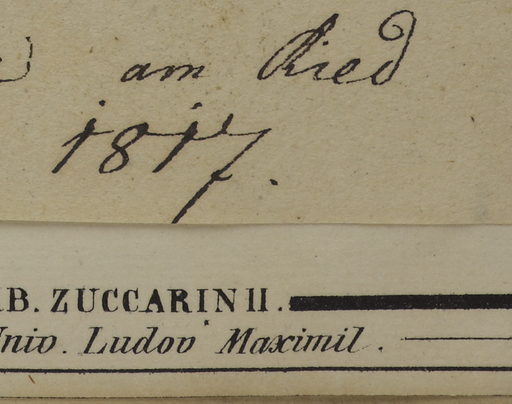 am Ried
1817.
B. ZUCCARINII.
Univ. Ludov Maximil.